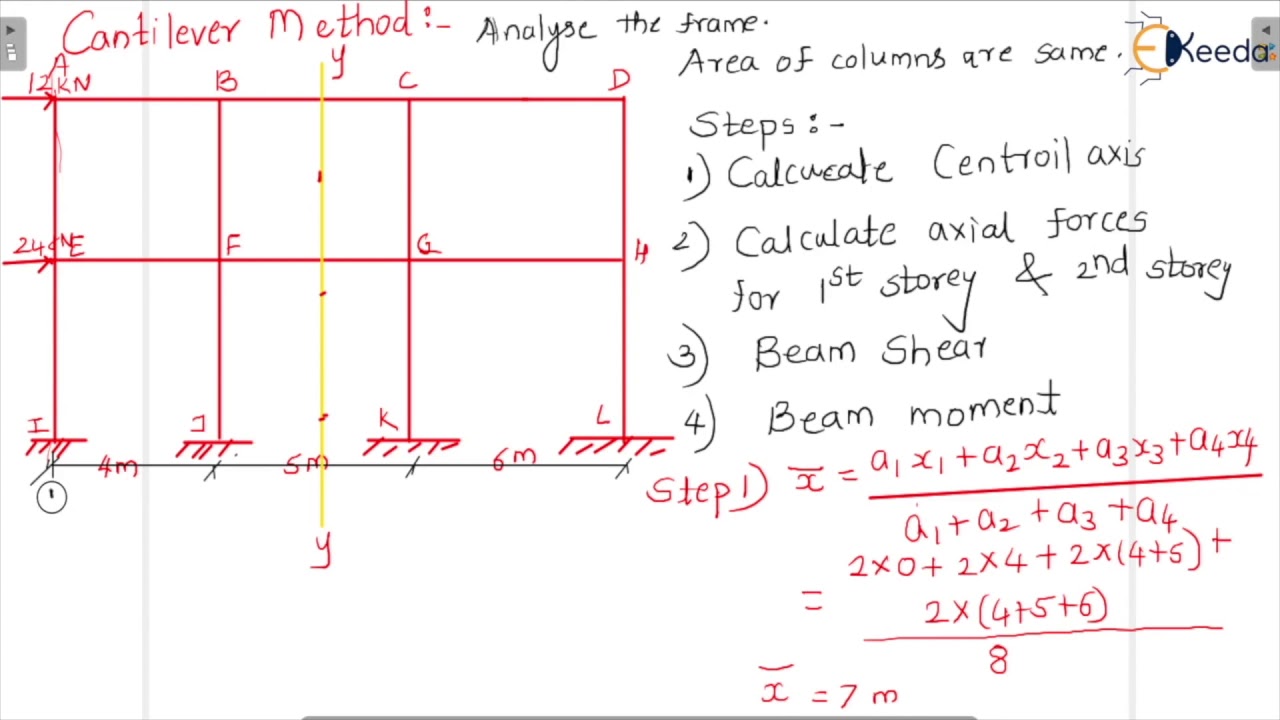 Cantilever Method:- Analyse the frame.
Area of columns are same.
EKeeda
y
A B C D
12kN
Steps:-
1) Calcueate Centroil axis
2) Calculate axial forces
for 1st storey & 2nd storey
3) Beam Shear
4) Beam moment
E F G H
I J K L
4m 5m 6m
1
y
Step 1) x̅ = a1x1+a2x2+a3x3+a4x4
a1+a2+a3+a4
= 2×0+2×4+2×(4+5)+
2×(4+5+6)
8
x̅ = 7 m